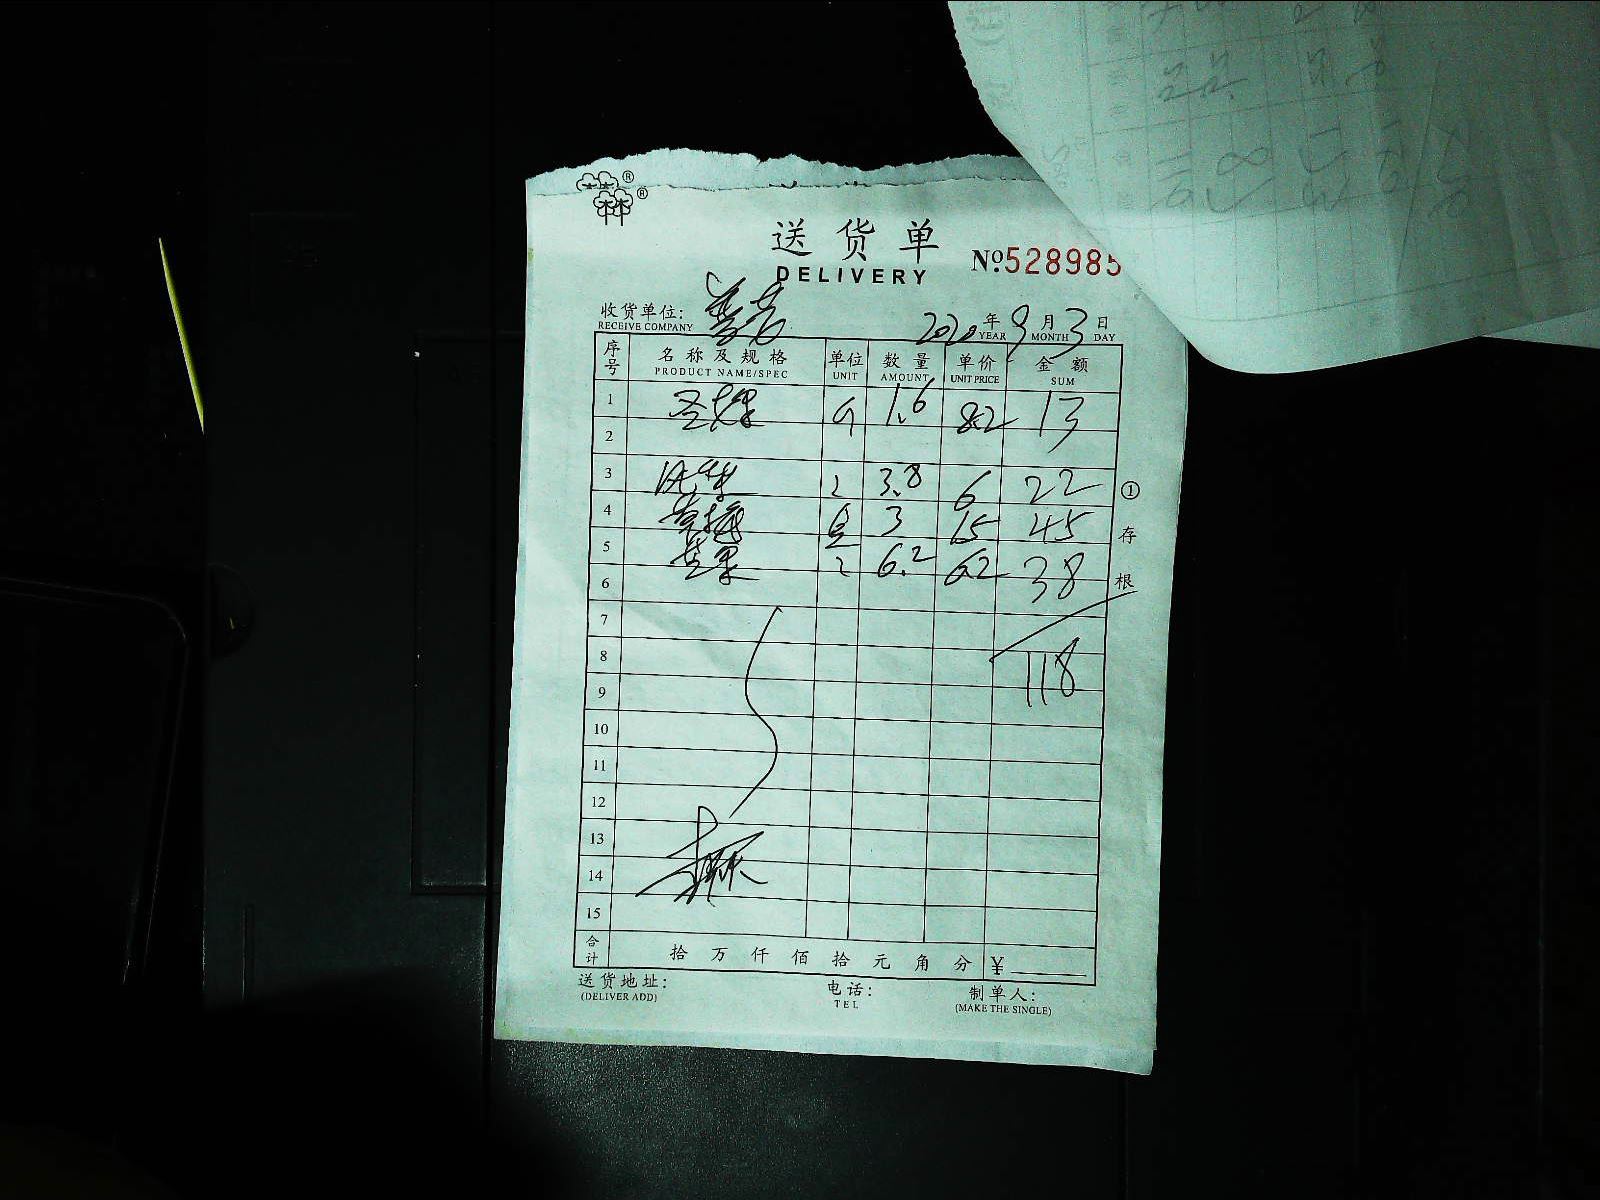 送货单
DELIVERY
№528985
收货单位:
RECEIVE COMPANY
2020年9月3日
YEAR MONTH DAY
序号 名称及规格 单位 数量 单价 金额
PRODUCT NAME/SPEC UNIT AMOUNT UNIT PRICE SUM
1 1.6 8.2 13
2
3 3.8 6 22
4 3 15 45
5 苹果 6.2 6.2 38
6
7
8 118
9
10
11
12
13
14
15
合计 拾 万 仟 佰 拾 元 角 分 ¥
①存根
送货地址: 电话: 制单人:
(DELIVER ADD) TEL (MAKE THE SINGLE)